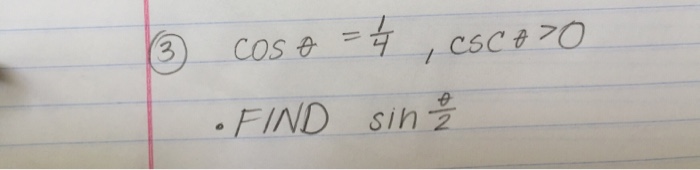 ③ cos θ = 1/4 , csc θ > 0
• FIND sin θ/2